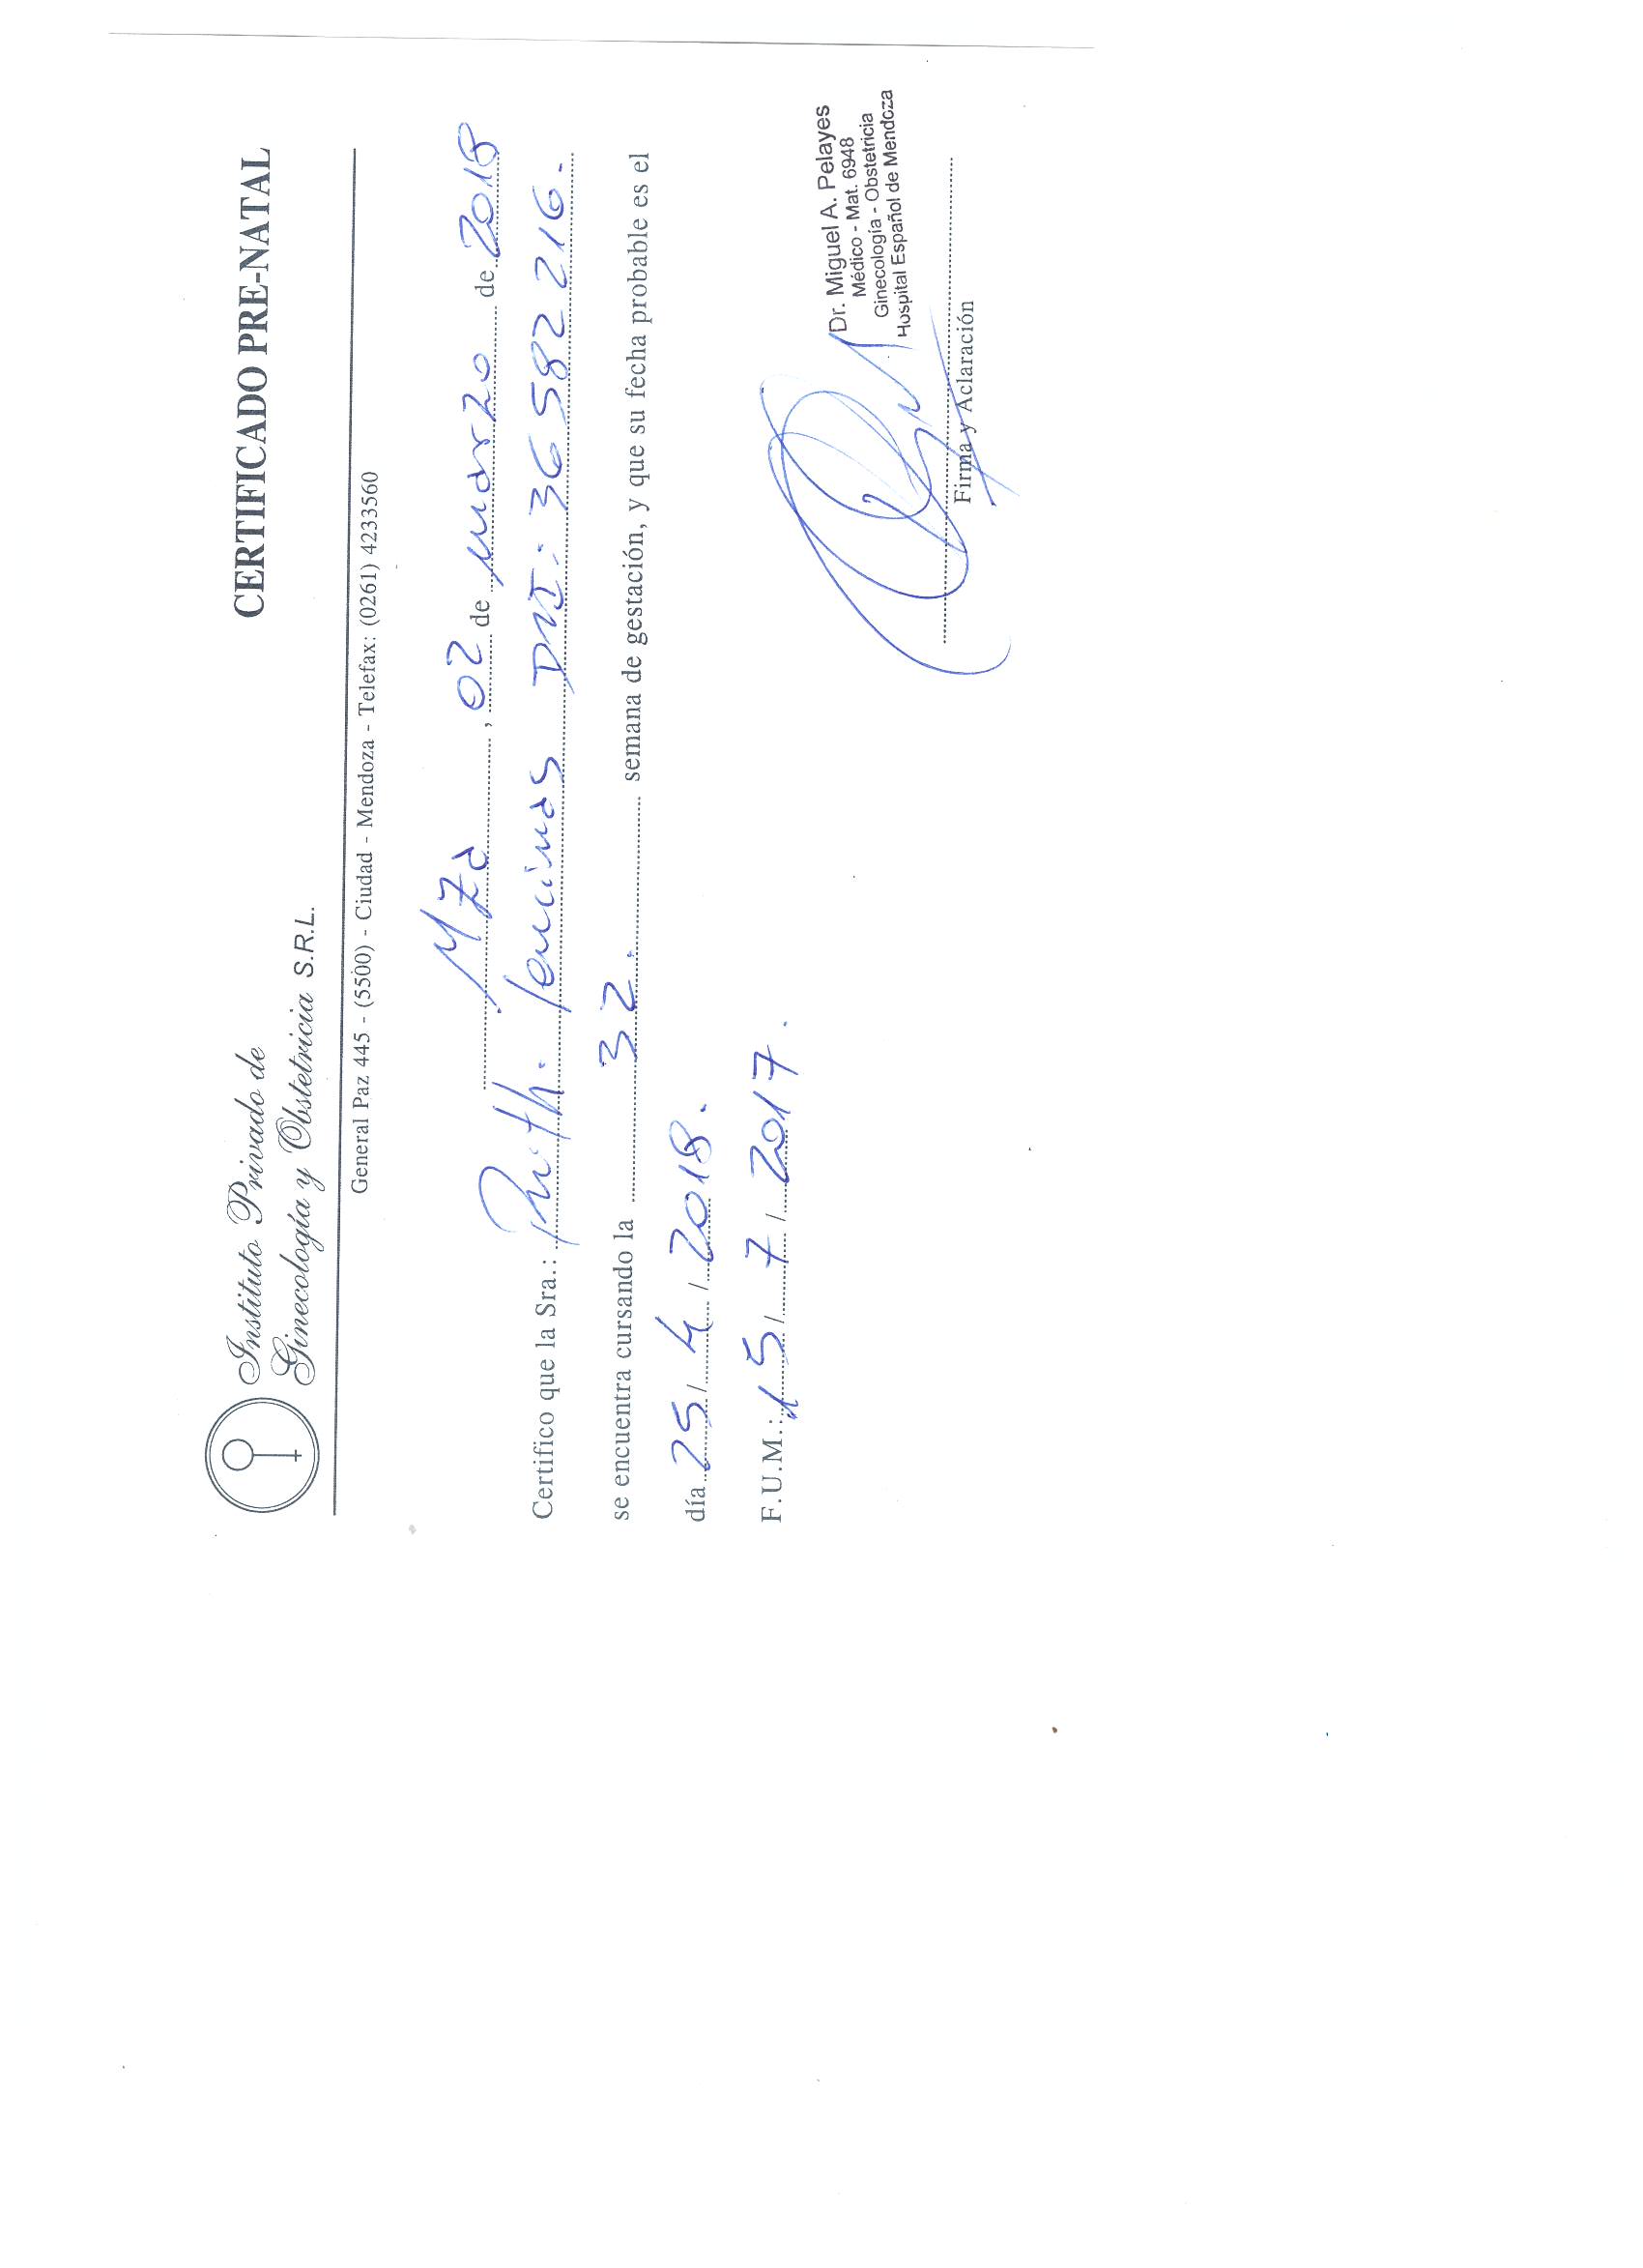 Instituto Privado de
Ginecología y Obstetricia S.R.L.
CERTIFICADO PRE-NATAL
General Paz 445 - (5500) - Ciudad - Mendoza - Telefax: (0261) 4233560
Mza, 02 de marzo de 2018
Certifico que la Sra.: DNI: 36 582 216.
se encuentra cursando la 32. semana de gestación, y que su fecha probable es el
día 25 / 4 / 2018.
F.U.M.: 15 / 7 / 2017.
Dr. Miguel A. Pelayes
Médico - Mat. 6948
Ginecología - Obstetricia
Hospital Español de Mendoza
Firma y Aclaración